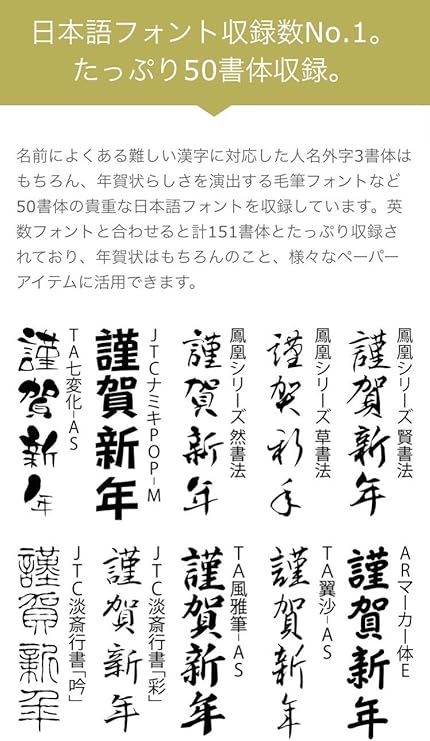 日本語フォント収録数No.1。
たっぷり50書体収録。
名前によくある難しい漢字に対応した人名外字3書体は
もちろん、年賀状らしさを演出する毛筆フォントなど
50書体の貴重な日本語フォントを収録しています。英
数フォントと合わせると計151書体とたっぷり収録さ
れており、年賀状はもちろんのこと、様々なペーパー
アイテムに活用できます。
鳳凰シリーズ 賢書法
謹賀新年
鳳凰シリーズ 草書法
謹賀新年
鳳凰シリーズ 然書法
謹賀新年
JTCナミキPOP-M
謹賀新年
TA七変化-AS
謹賀新年
ARマーカー体E
謹賀新年
TA翼沙-AS
謹賀新年
TA風雅筆-AS
謹賀新年
JTC淡斎行書「彩」
謹賀新年
JTC淡斎行書「吟」
謹賀新年